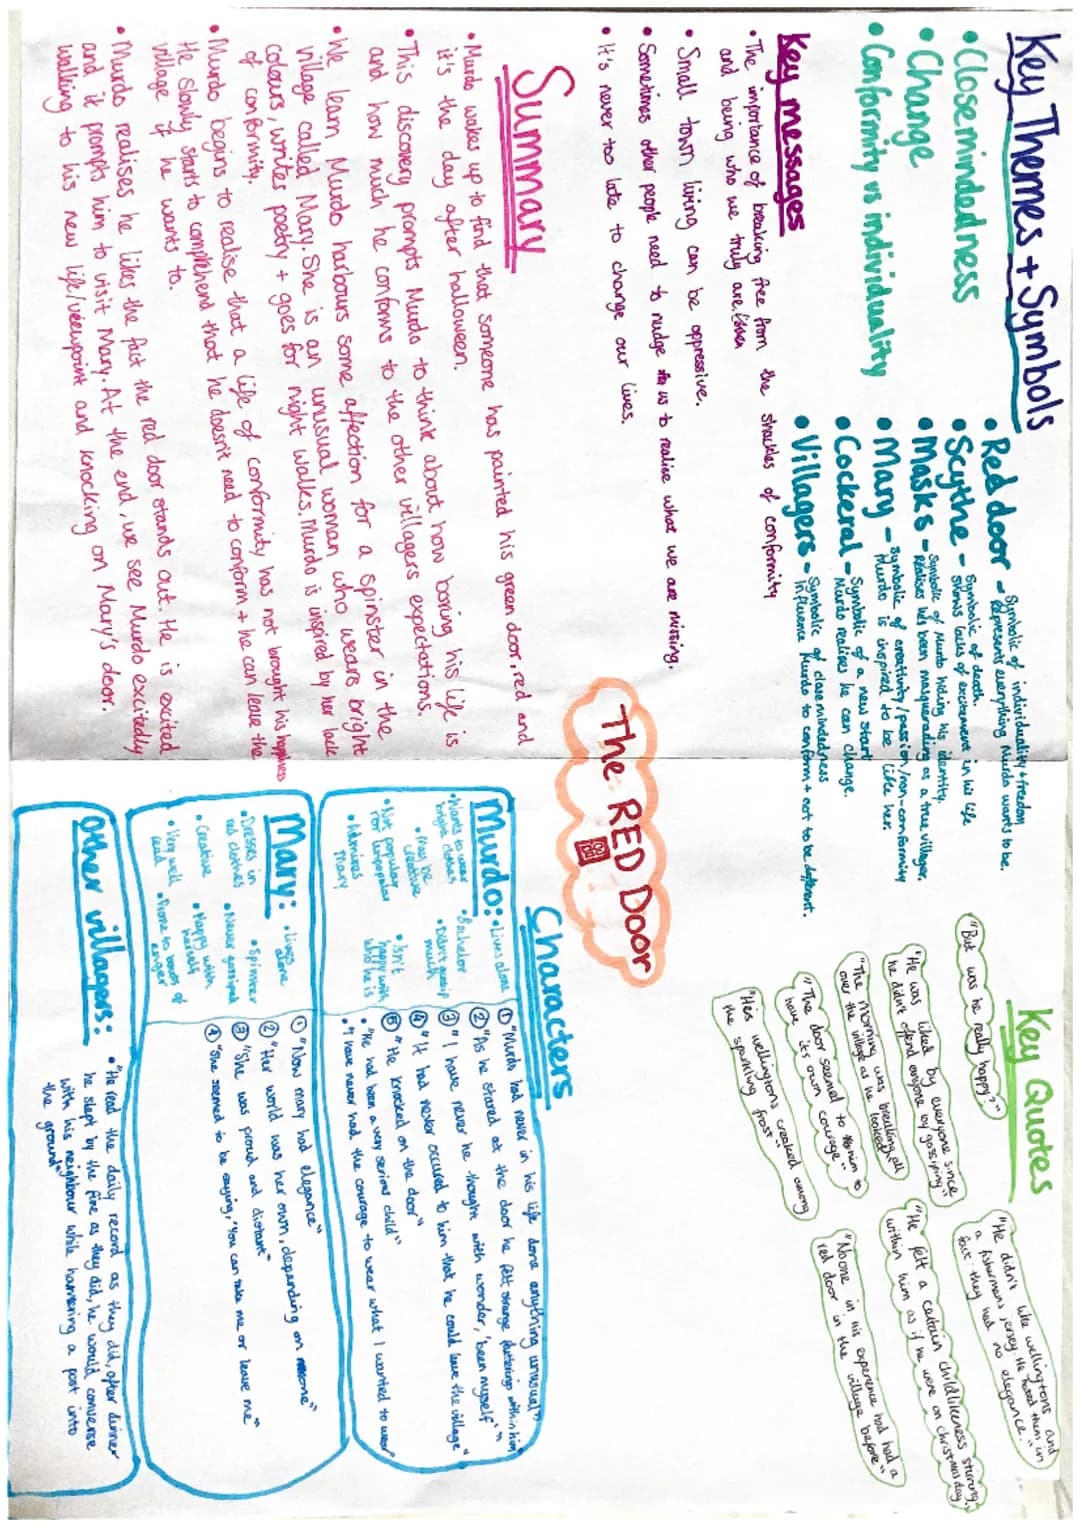 Key Themes + Symbols
• Closemindedness
• Change
• Conformity vs individuality
• Red door - Symbolic of individuality + freedom
Represents everything Murdo wants to be.
• Scythe - Symbolic of death.
Shows lack of excitement in his life
• Masks - Symbolic of Murdo hiding his identity.
Realises he's been masquerading as a true villager.
• Mary - Symbolic of creativity/passion/non-conformity
Murdo is inspired to be like her.
• Cockeral - Symbolic of a new start
Murdo realises he can change.
• Villagers - Symbolic of closemindedness
Influence Murdo to conform + not to be different.
Key messages
• The importance of breaking free from the shackles of conformity
and being who we truly are.
• Small town living can be oppressive.
• Sometimes other people need to nudge us to realise what we are missing.
• It's never too late to change our lives.
Summary
• Murdo wakes up to find that someone has painted his green door red and
it's the day after halloween.
• This discovery prompts Murdo to think about how boring his life is
and how much he conforms to the other villagers expectations.
• We learn Murdo harbours some affection for a spinster in the
village called Mary. She is an unusual woman who wears bright
colours, writes poetry + goes for night walks. Murdo is inspired by her lack
of conformity.
• Murdo begins to realise that a life of conformity has not brought his happiness
He slowly starts to comprehend that he doesn't need to conform + he can leave the
village if he wants to.
• Murdo realises he likes the fact the red door stands out. He is excited
and it prompts him to visit Mary. At the end, we see Murdo excitedly
walking to his new life/viewpoint and knocking on Mary's door.
The RED Door
Key Quotes
"But was he really happy?"
"He was liked by everyone since
he didn't offend anyone by gossiping"
"The morning was breaking all
over the village as he looked"
"The door seemed to him to
have its own courage"
"His wellingtons creaked among
the sparkling frost"
"He didn't like wellingtons and
a fisherman's jersey. He hated them, in
fact: they had no elegance."
"He felt a certain childlikeness stirring
within him as if he were on christmas day"
"No one in his experience had had a
red door in the village before"
Characters
Murdo:
• Lives alone
• Wants to wear
bright clothes
• Bachelor
• May be
creative
• Didn't gossip
much
• Not popular
nor unpopular
• Isn't
happy with
who he is
• Admires
Mary
① "Murdo had never in his life done anything unusual"
② "As he stared at the door he felt strange flutterings within him"
③ "I have never he thought with wonder, 'been myself'"
④ "It had never occured to him that he could leave the village"
⑤ "He knocked on the door"
• "He had been a very serious child"
• "I have never had the courage to wear what I wanted to wear"
Mary:
• Lives
alone
• Dresses in
red clothes
• Spinster
• Never gossiped
• Creative
• Happy with
herself
• Very well
read
• Prone to bouts of
anger
① "Now mary had elegance"
② "Her world was her own, depending on none"
③ "She was proud and distant"
④ "She seemed to be saying, 'You can take me or leave me"
Other villagers:
• "He read the daily record as they did, after dinner
he slept by the fire as they did, he would converse
with his neighbour while hammering a post into
the ground"